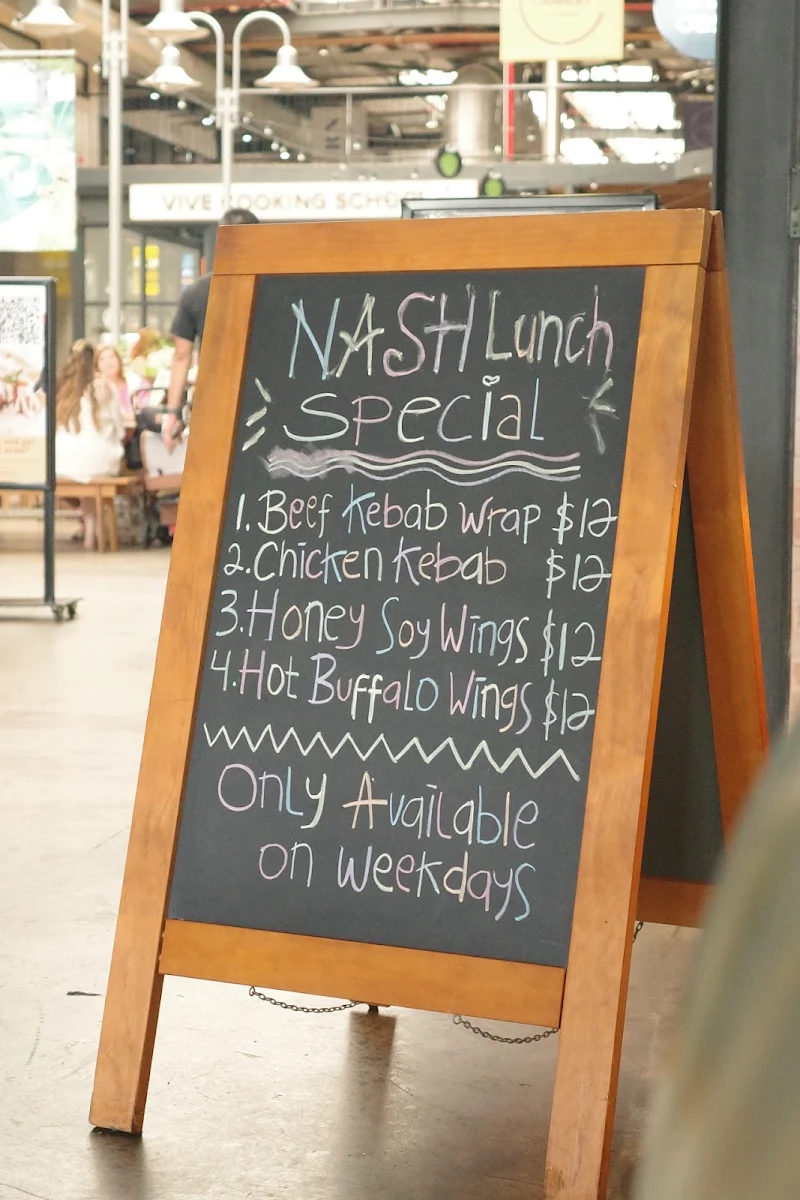 VIVE COOKING SCHOOL
NASH Lunch
Special
1. Beef Kebab Wrap $12
2. Chicken Kebab $12
3. Honey Soy Wings $12
4. Hot Buffalo Wings $12
Only Available
on weekdays